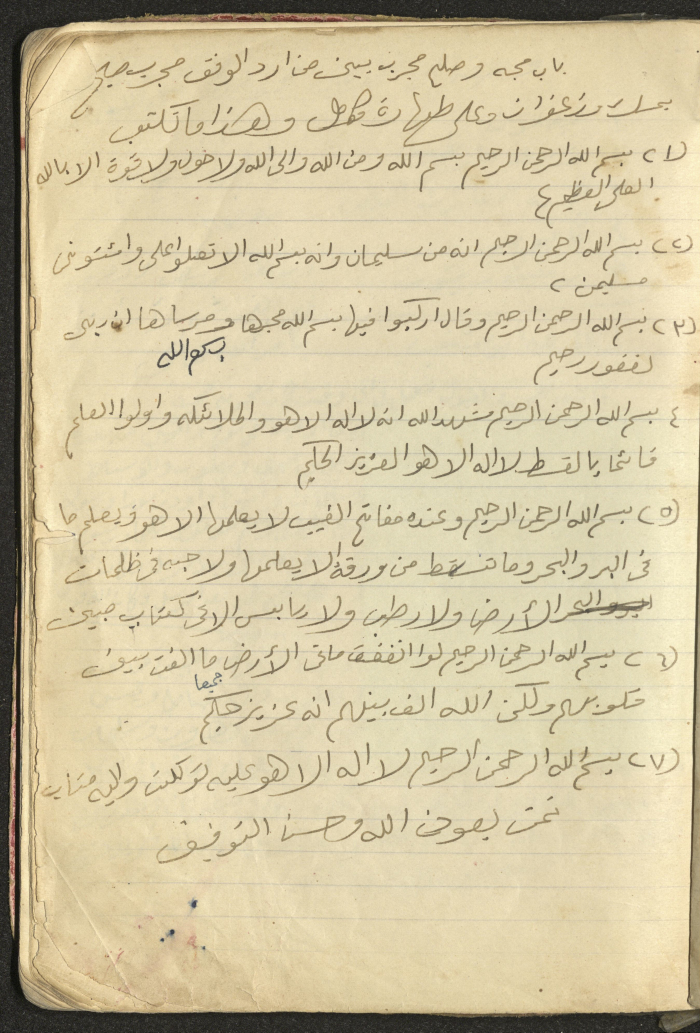 باب محبه وصلح مجرب بيين من ارد الوفق مجرب صحيح
بمسك وزعفران وعلى طهارة كامل وهذا ما تكتوب
(١) بسم الله الرحمن الرحيم بسم الله ومن الله والى الله ولا حول ولا قوة الا بالله
العلى العظيم
(٢) بسم الله الرحمن الرحيم انه من سليمان وانه بسم الله الا تعلوا على وائتونى
مسلمين
(٣) بسم الله الرحمن الرحيم وقال اركبوا فيها بسم الله مجرها ومرساها ان ربى
بسم الله
لغفور رحيم
٤ بسم الله الرحمن الرحيم شهد الله انه لا اله الا هو والملائكه واولوا العلم
قائما بالقسط لا اله الا هو العزيز الحكيم
(٥) بسم الله الرحمن الرحيم وعنده مفاتح الغيب لا يعلمها الا هو ويعلم ما
فى البر والبحر وما تسقط من ورقة الا يعلمها ولا حبه فى ظلمات
الأرض ولا رطب ولا يابس الا فى كتاب مبين
(٦) بسم الله الرحمن الرحيم لوا انفقت ما فى الأرض ما الفت بين
جميعا
قلوبهم ولكن الله الف بينهم انه عزيز حكيم
(٧) بسم الله الرحمن الرحيم لا اله الا هو عليه توكلت واليه متاب
تمت بعون الله وحسن التوفيق